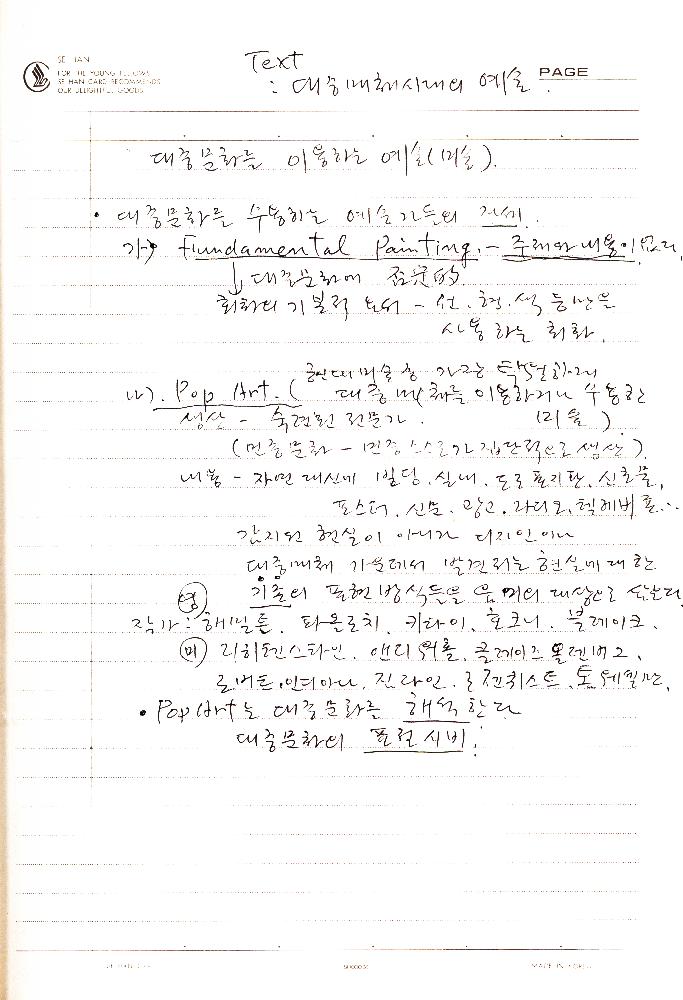 SE HAN
FOR THE YOUNG FELLOWS
SE HAN CARD RECOMMENDS
OUR DELIGHTFUL GOODS
PAGE
Text
: 대중매체시대의 예술.
대중문화를 이용하는 예술(미술).
• 대중문화를 수용하는 예술가들의 자세.
가→ Fundamental Painting. - 주제와 내용이 없다.
↓ 대중문화에 否定的
회화의 기본적 요소 - 선. 형. 색 등만을
사용하는 회화.
나). Pop Art. ( 현대미술 중 가장 탁월하게
대중매체를 이용하거나 수용한
미술 )
생산 - 숙련된 전문가.
(민중문화 - 민중 스스로가 집단적으로 생산).
내용 - 자연 대신에 빌딩, 실내, 도로표지판, 신호물,
포스터, 신문, 광고, 라디오, 텔레비젼...
감지된 현실이 아니라 디자인이나
대중매체 가운데서 발견되는 현실에 대한
기존의 표현방식들을 유머의 대상으로 삼는다
영
작가: 해밀튼, 파올로치, 키타이, 호크니, 블레이크.
미 리히텐스타인, 앤디 워홀, 클레이즈 올덴버그,
로버트 인디아나, 진 다인, 로젠퀴스트, 톰 웨셀만,
• Pop Art는 대중문화를 해석한다
대중문화의 표절시비.
MADE IN KOREA